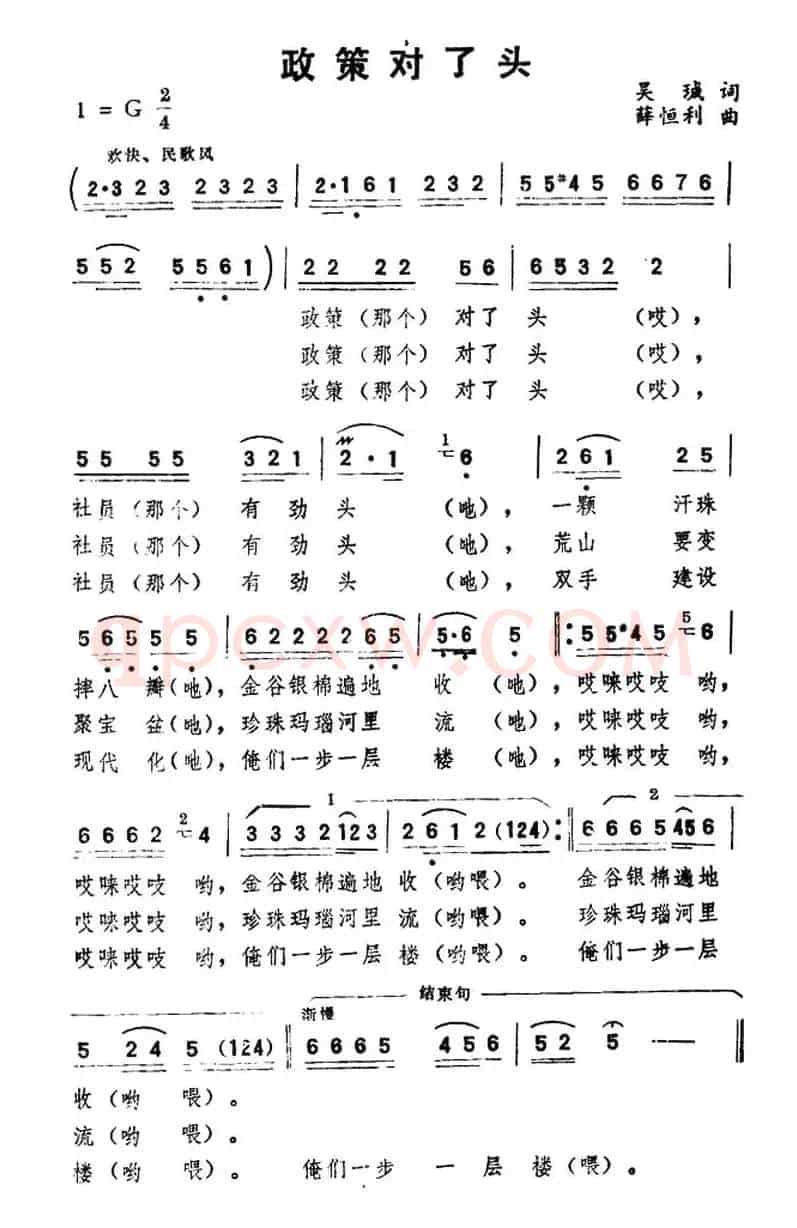 政策对了头
1 = G 2/4
吴 琙 词
薛恒利 曲
欢快、民歌风
(2·323 2323 | 2·161 232 | 55#45 6676
552 5561) | 22 22 56 | 6532 2
政策(那个) 对了 头 (哎),
政策(那个) 对了 头 (哎),
政策(那个) 对了 头 (哎),
55 55 321 | 2·1 1 6 | 261 25
社员(那个) 有 劲 头 (吔), 一颗 汗珠
社员(那个) 有 劲 头 (吔), 荒山 要变
社员(那个) 有 劲 头 (吔), 双手 建设
5655 5 | 6222265 | 5·6 5 ‖: 55#45 5 6
摔八 瓣(吔), 金谷银棉遍地 收 (吔), 哎唻哎吱 哟,
聚宝 盆(吔), 珍珠玛瑙河里 流 (吔), 哎唻哎吱 哟,
现代 化(吔), 俺们一步一层 楼 (吔), 哎唻哎吱 哟,
1
2
6662 2 4 | 3332123 | 261 2(124) :‖ 6665456
哎唻哎吱 哟, 金谷银棉遍地 收(哟喂)。 金谷银棉遍地
哎唻哎吱 哟, 珍珠玛瑙河里 流(哟喂)。 珍珠玛瑙河里
哎唻哎吱 哟, 俺们一步一层 楼(哟喂)。 俺们一步一层
结束句
渐慢
5 24 5 (124) ‖ 6665 4 2 4 | 52 5 — ‖
收(哟 喂)。
流(哟 喂)。
楼(哟 喂)。 俺们一步 一 层 楼(喂)。
qpcxw.COM